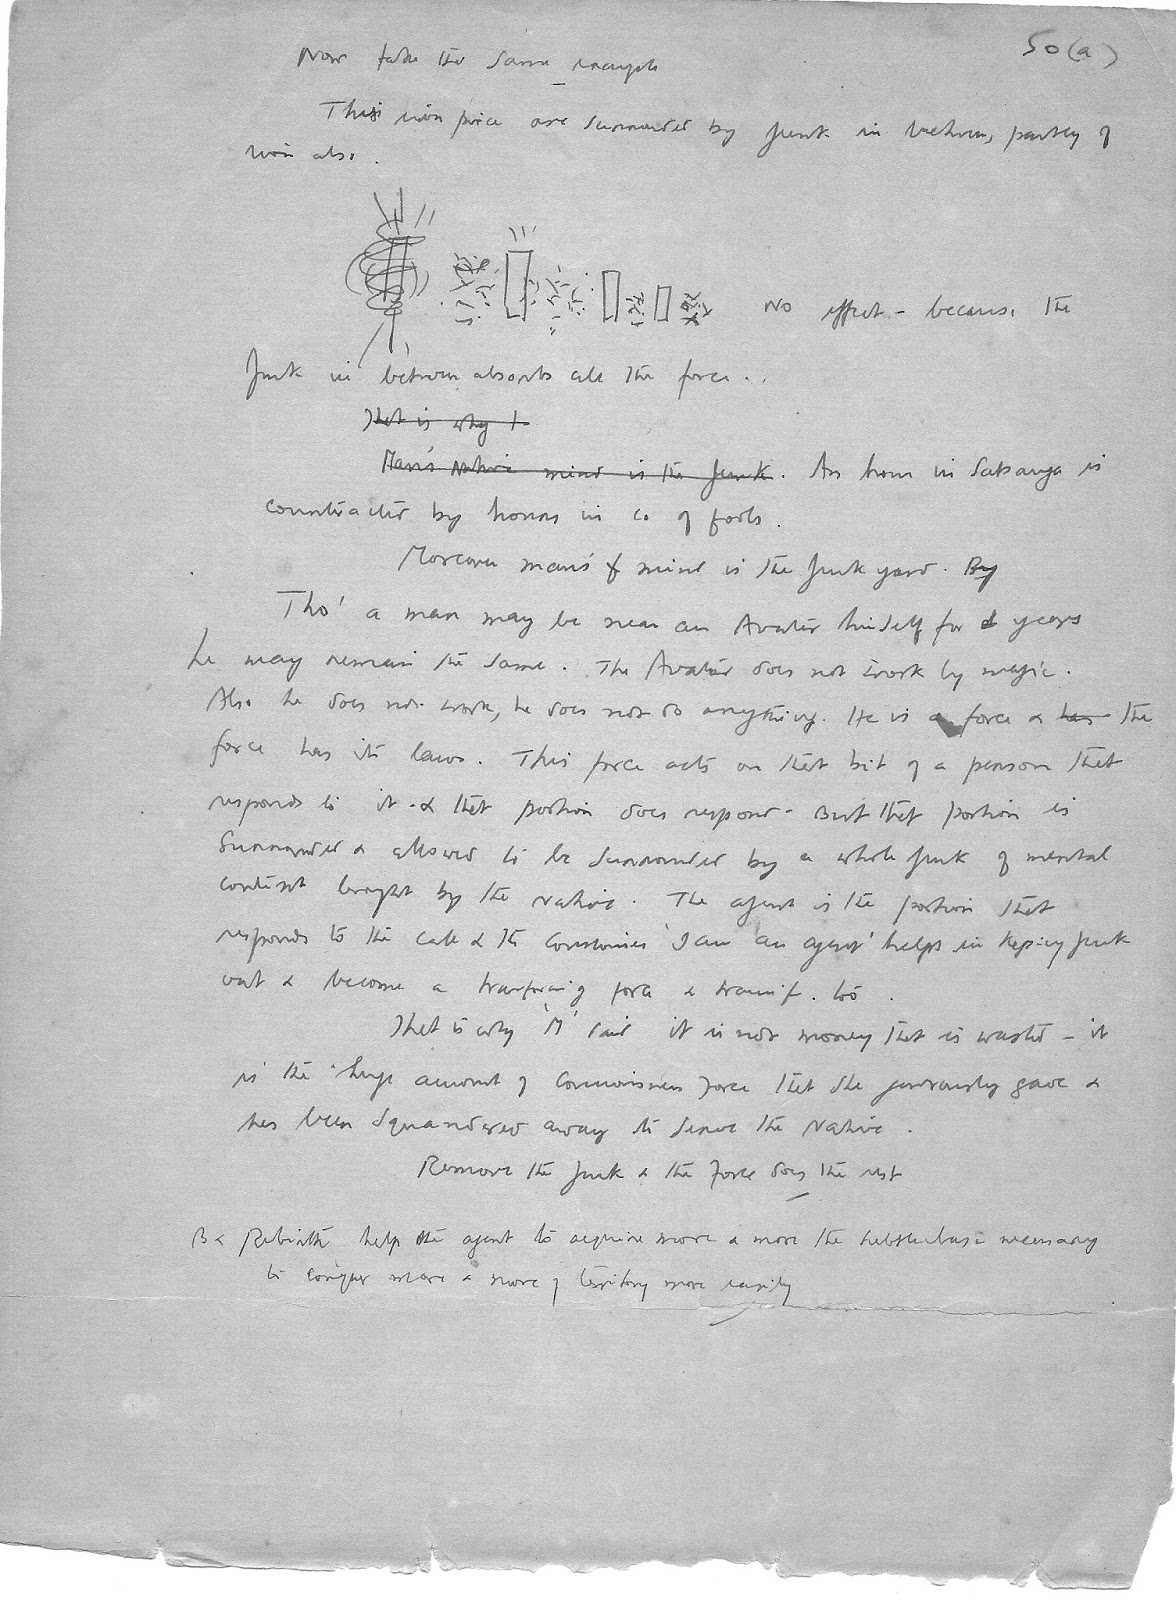 50(a)
Now take the same example
This iron piece are surrounded by junk in between, partly of
iron also.
No effect - because the
junk in between absorbs all the force...
That is why I
Man's Native mind is the junk. An hour in Satsanga is
counteracted by hours in co of fools.
Moreover man's mind is the junk yard. By
Tho' a man may be near an Avatar himself for years
he may remain the same. The Avatar does not work by magic.
Also he does not work, he does not do anything. He is a force & has the
force has its laws. This force acts on that bit of a person that
responds to it & that portion does respond - But that portion is
Surrounded & allowed to be surrounded by a whole junk of mental
content brought by the native. The agent is the portion that
responds to the call & the consciousness 'I am an agent' helps in keeping junk
out & become a transforming force & transf. too.
That is why 'M' said it is not money that is wasted - it
is the huge amount of Consciousness Force that She generously gave &
has been squandered away to serve the Native.
Remove the junk & the Force does the rest
Rebirth help the agent to acquire more & more the necessary
to conquer more & more of territory more easily